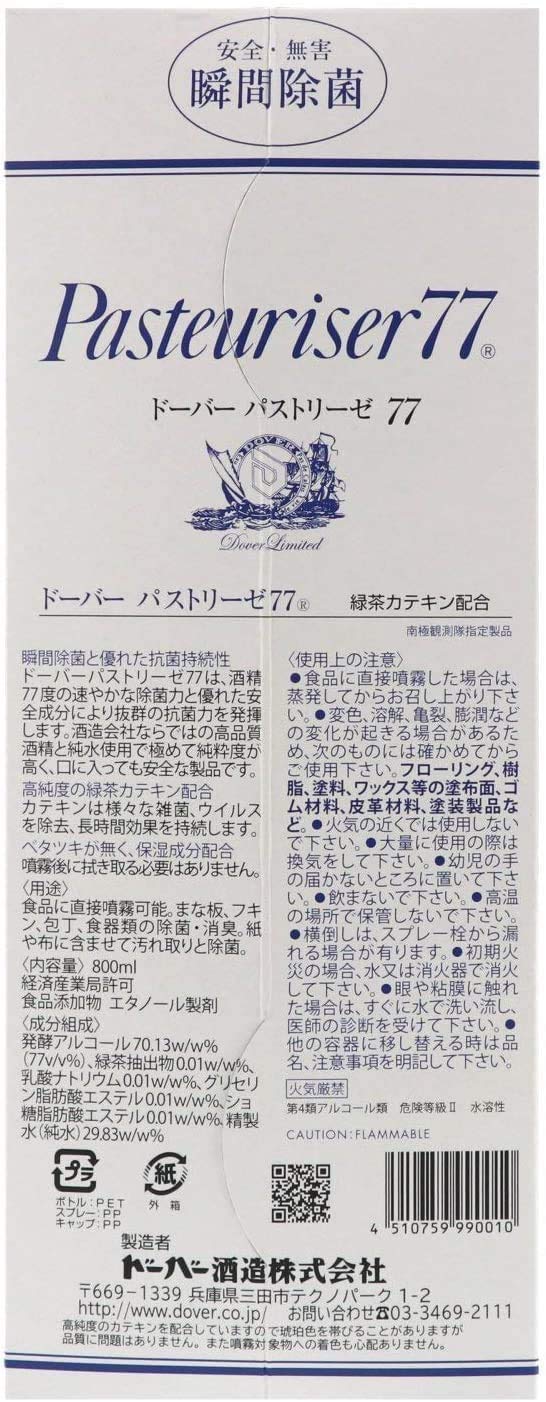 安全・無害
瞬間除菌
Pasteuriser77®
ドーバー パストリーゼ 77
DOVER
Dover Limited
ドーバー パストリーゼ77®
緑茶カテキン配合
南極観測隊指定製品
瞬間除菌と優れた抗菌持続性
ドーバーパストリーゼ77は、酒精
77度の速やかな除菌力と優れた安
全成分により抜群の抗菌力を発揮
します。酒造会社ならではの高品質
酒精と純水使用で極めて純粋度が
高く、口に入っても安全な製品です。
高純度の緑茶カテキン配合
カテキンは様々な雑菌、ウイルス
を除去、長時間効果を持続します。
ベタツキが無く、保湿成分配合
噴霧後に拭き取る必要はありません。
〈用途〉
食品に直接噴霧可能。まな板、フキ
ン、包丁、食器類の除菌・消臭。紙
や布に含ませて汚れ取りと除菌。
〈内容量〉 800ml
経済産業局許可
食品添加物 エタノール製剤
〈成分組成〉
発酵アルコール70.13w/w%
(77v/v%)、緑茶抽出物0.01w/w%、
乳酸ナトリウム0.01w/w%、グリセリ
ン脂肪酸エステル0.01w/w%、ショ
糖脂肪酸エステル0.01w/w%、精製
水(純水)29.83w/w%
〈使用上の注意〉
●食品に直接噴霧した場合は、
蒸発してからお召し上がり下さ
い。●変色、溶解、亀裂、膨潤など
の変化が起きる場合があるた
め、次のものには確かめてから
ご使用下さい。フローリング、樹
脂、塗料、ワックス等の塗布面、ゴ
ム材料、皮革材料、塗装製品な
ど。●火気の近くでは使用しない
で下さい。●大量に使用の際は
換気をして下さい。●幼児の手
の届かないところに置いて下さ
い。●飲まないで下さい。●高温
の場所で保管しないで下さい。
●横倒しは、スプレー栓から漏
れる場合が有ります。●初期火
災の場合、水又は消火器で消火
して下さい。●眼や粘膜に触れ
た場合は、すぐに水で洗い流し、
医師の診断を受けて下さい。●
他の容器に移し替える時は品
名、注意事項を明記して下さい。
火気厳禁
第4類アルコール類 危険等級Ⅱ 水溶性
CAUTION:FLAMMABLE
プラ
ボトル:PET
スプレー:PP
キャップ:PP
紙
外 箱
4 510759 990010
製造者
ドーバー酒造株式会社
〒669-1339 兵庫県三田市テクノパーク 1-2
http://www.dover.co.jp/ お問い合わせ☎03-3469-2111
高純度のカテキンを配合していますので琥珀色を帯びることがありますが
品質に問題はありません。また噴霧対象物への着色も心配ありません。